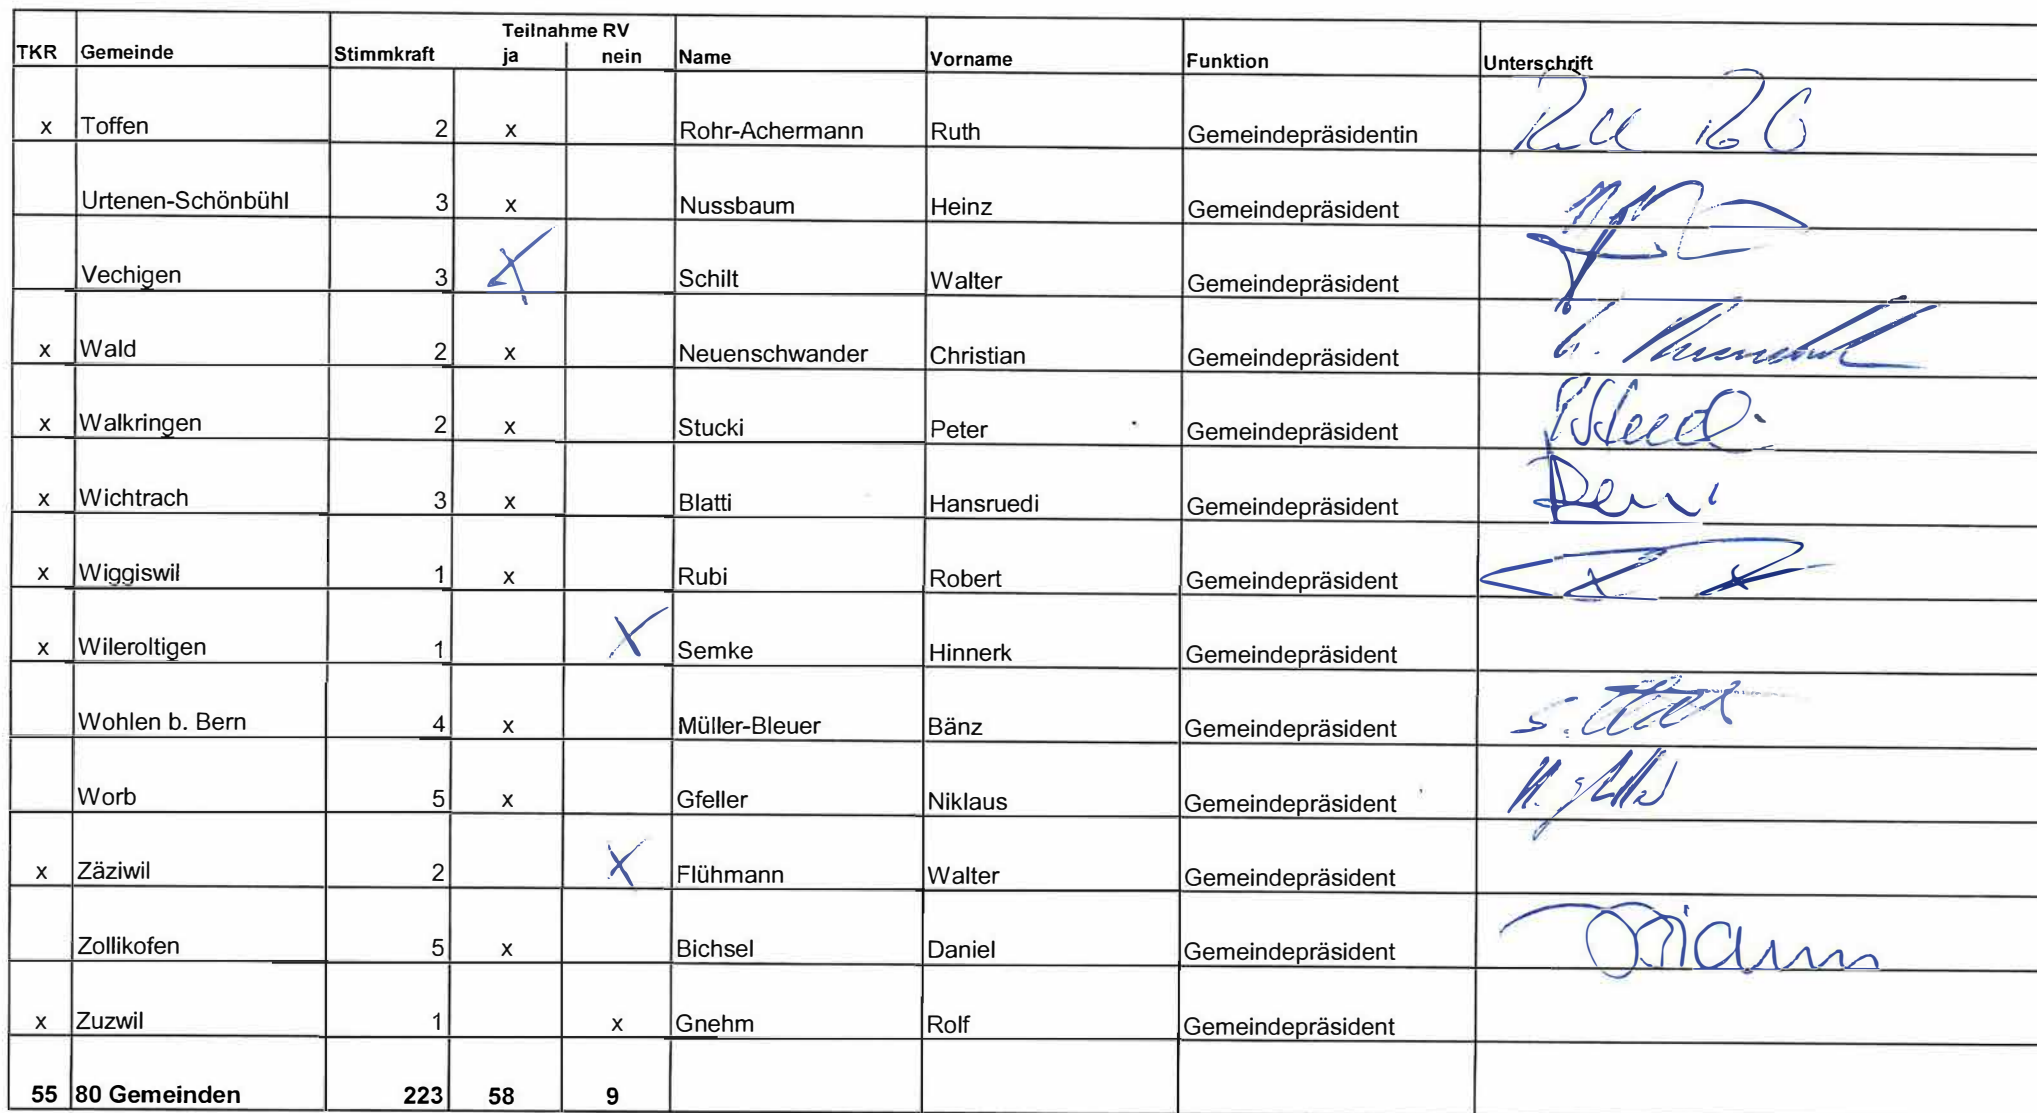 Teilnahme RV
TKR Gemeinde Stimmkraft ja nein Name Vorname Funktion Unterschrift
x Toffen 2 x Rohr-Achermann Ruth Gemeindepräsidentin
Urtenen-Schönbühl 3 x Nussbaum Heinz Gemeindepräsident
Vechigen 3 x Schilt Walter Gemeindepräsident
x Wald 2 x Neuenschwander Christian Gemeindepräsident
x Walkringen 2 x Stucki Peter Gemeindepräsident
x Wichtrach 3 x Blatti Hansruedi Gemeindepräsident
x Wiggiswil 1 x Rubi Robert Gemeindepräsident
x Wileroltigen 1 x Semke Hinnerk Gemeindepräsident
Wohlen b. Bern 4 x Müller-Bleuer Bänz Gemeindepräsident
Worb 5 x Gfeller Niklaus Gemeindepräsident
x Zäziwil 2 x Flühmann Walter Gemeindepräsident
Zollikofen 5 x Bichsel Daniel Gemeindepräsident
x Zuzwil 1 x Gnehm Rolf Gemeindepräsident
55 80 Gemeinden 223 58 9